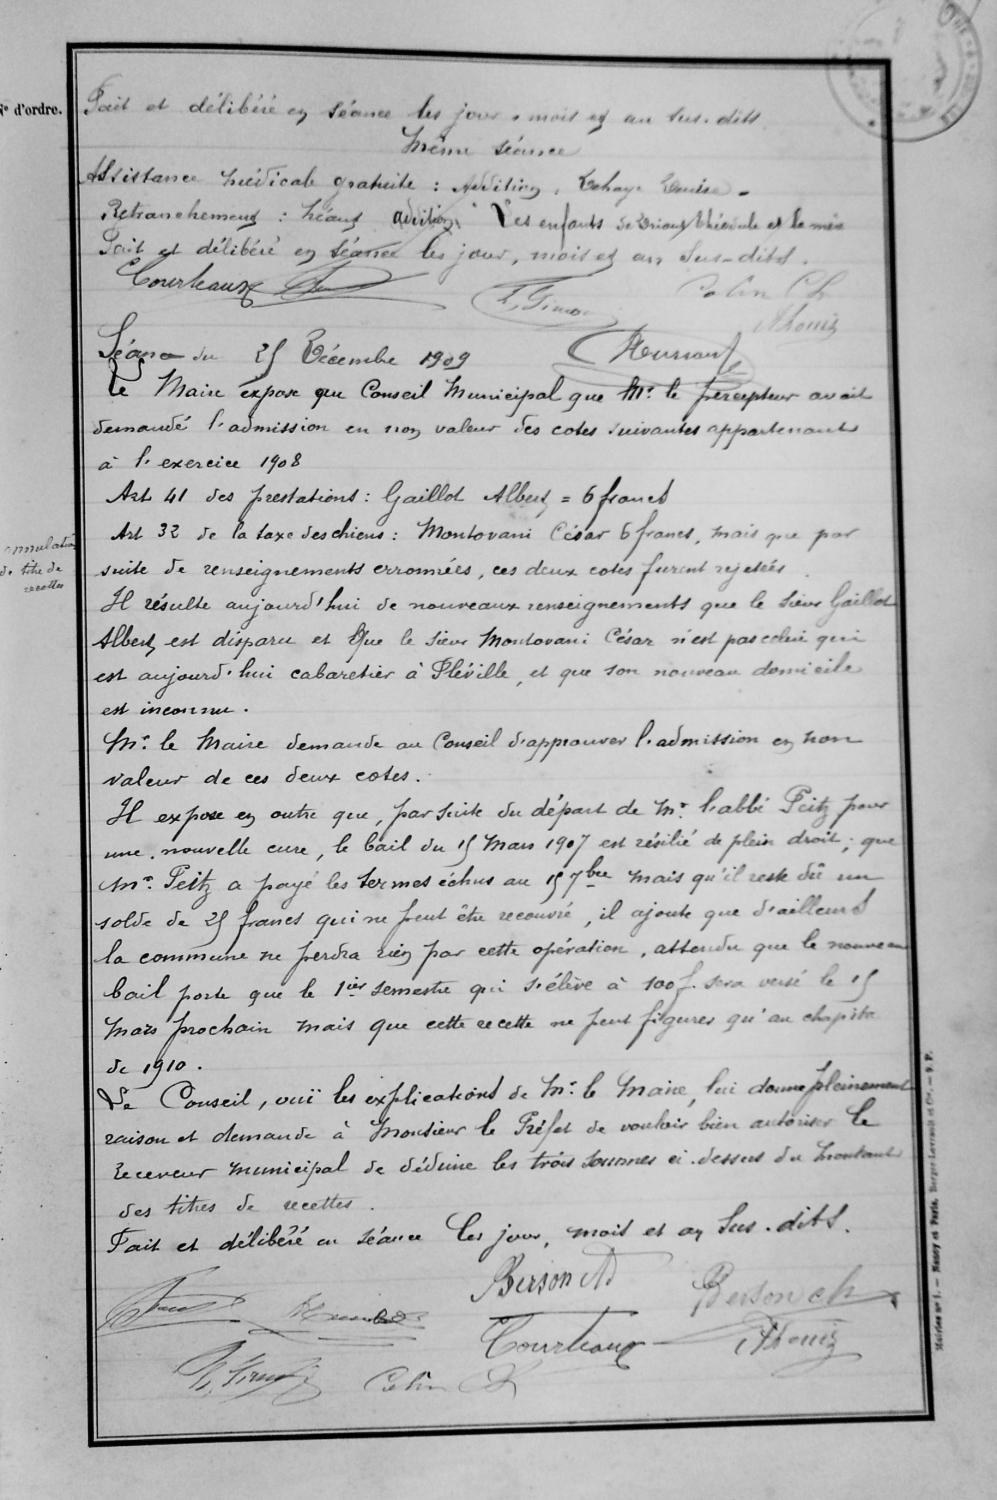 N° d'ordre.
Fait et délibéré en séance les jour, mois et an sus-dits
Même séance
Assistance médicale gratuite : Addition : Dehaye Louise.
Retranchement : néant addition : Les enfants de Théodule et la mère
Fait et délibéré en séance les jour, mois et an sus-dits.
Courteaux
F. Simon Colin Ch
Thouiz
Séance du 25 Décembre 1909
Le Maire expose que Conseil Municipal que Mr. le percepteur avait
demandé l'admission en non valeur des cotes suivantes appartenant
à l'exercice 1908
Art 41 des prestations : Gaillot Albert = 6 francs
Art 32 de la taxe des chiens : Montovani César 6 francs, mais que par
annulation
de titre de
recettes
suite de renseignements erronnées, ces deux cotes furent rejetées.
Il résulte aujourd'hui de nouveaux renseignements que le sieur Gaillot
Albert, est disparu et que le sieur Montovani César n'est pas celui qui
est aujourd'hui cabaretier à Fléville, et que son nouveau domicile
est inconnu.
Mr. le Maire demande au Conseil d'approuver l'admission en non
valeur de ces deux cotes.
Il expose en outre que, par suite du départ de Mr l'abbé Peitz pour
une nouvelle cure, le bail du 15 Mars 1907 est résilié de plein droit ; que
Mr. Peitz a payé les termes échus au 15 7bre mais qu'il reste dû un
solde de 25 francs qui ne peut être recouvré, il ajoute que d'ailleurs
la commune ne perdra rien par cette opération, attendu que le nouveau
bail porte que le 1ier semestre qui s'élève à 100 f. sera versé le 15
Mars prochain mais que cette recette ne peut figurer qu'au chapitre
de 1910.
Le Conseil, ouï les explications de Mr. le Maire, lui donne pleinement
raison et demande à Monsieur le Préfet de vouloir bien autoriser le
receveur municipal de déduire les trois sommes ci-dessus du montant
des titres de recettes.
Fait et délibéré en séance les jour, mois et an sus-dits.
Berson Ad Berson ch
Courteaux Thouiz
F. Simon Colin Ch
Mairies n° 1. — Nancy et Paris, Berger-Levrault et Cie. — 9 P.